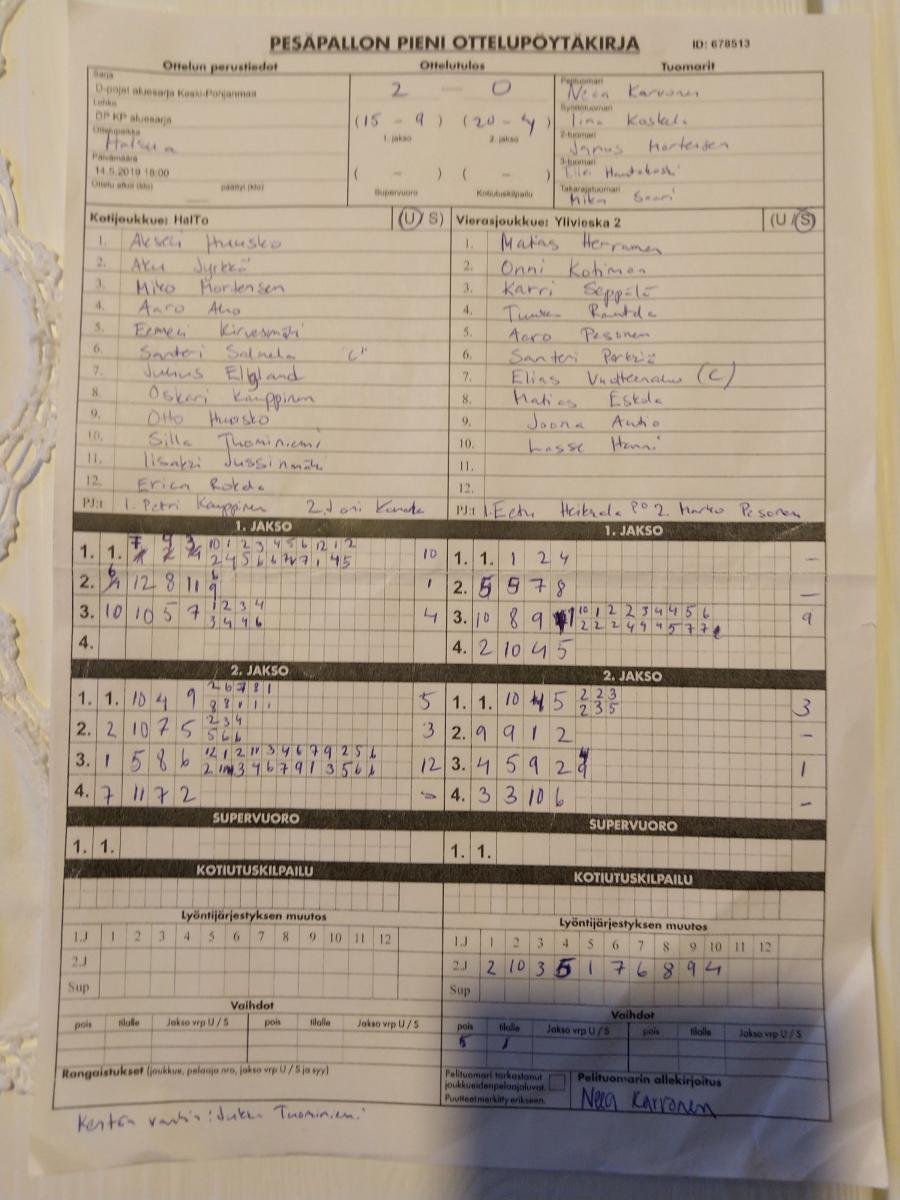 PESÄPALLON PIENI OTTELUPÖYTÄKIRJA ID: 678513
Ottelun perustiedot Ottelutulos Tuomarit
Sarja
D-pojat aluesarja Keski-Pohjanmaa
Lohko
DP KP aluesarja
Ottelupaikka
Halsua
Päivämäärä
14.5.2019 18:00
Ottelu alkoi (klo) päättyi (klo)
2 — 0
(15 - 9) (20 - 4)
1. jakso 2. jakso
( - ) ( - )
Supervuoro Kotiutuskilpailu
Pelituomari
Neea Karvonen
Syöttötuomari
Iina Koskela
2-tuomari
Mortensen
3-tuomari
Takarajatuomari
Mika Saari
Kotijoukkue: HalTo (U / S)
1. Akseli Huusko
2. Aku Jyrkkä
3. Miko Mortensen
4. Aaro Aho
5. Eemeli Kirvesmäki
6. Santeri Salmela "C"
7. Julius Elgland
8. Oskari Kauppinen
9. Otto Huusko
10. Silla Tuominiemi
11. Iisakki Jussinmäki
12. Erica Rokda
PJ:t 1. Petri Kauppinen 2. Joni
Vierasjoukkue: Ylivieska 2 (U / S)
1. Matias Herranen
2. Onni Kotimaa
3. Karri Seppälä
4. Rautela
5. Aaro Pesonen
6. Santeri
7. Elias (C)
8. Matias Eskola
9. Joona Autio
10. Lasse Hanni
11.
12.
PJ:t 1. Eetu 2. Marko Pesonen
1. JAKSO
1. 1. 10
10 1 2 3 4 5 6 12 1 2
2. 12 8 11 1
3. 10 10 5 7 4
1 2 3 4
3 4 4 6
4.
2. JAKSO
1. 1. 10 4 9 5
2 6 7 8 1
8 8 1 1 1
2. 2 10 7 5 3
2 3 4
5 6 6
3. 1 5 8 6 12
12 1 2 11 3 4 6 7 9 2 5 6
4. 7 11 7 2 -
SUPERVUORO
1. 1.
KOTIUTUSKILPAILU
Lyöntijärjestyksen muutos
1.J 1 2 3 4 5 6 7 8 9 10 11 12
2.J
Sup
Vaihdot
pois tilalle Jakso vrp U / S pois tilalle Jakso vrp U / S
Rangaistukset (joukkue, pelaaja nro, jakso vrp U / S ja syy)
1. JAKSO
1. 1. 1 2 4 -
2. 5 5 7 8 -
3. 10 8 9 9
10 1 2 2 3 4 4 5 6
4. 2 10 4 5
2. JAKSO
1. 1. 10 4 5 3
2 2 3
2 3 5
2. 9 9 1 2 -
3. 4 5 9 2 1
4. 3 3 10 6 -
SUPERVUORO
1. 1.
KOTIUTUSKILPAILU
Lyöntijärjestyksen muutos
1.J 1 2 3 4 5 6 7 8 9 10 11 12
2.J 2 10 3 5 1 7 6 8 9 4
Sup
Vaihdot
pois tilalle Jakso vrp U / S pois tilalle Jakso vrp U / S
5 1
Pelituomari tarkastanut
joukkueiden pelaajaluvat.
Puutteet merkitty erikseen.
Pelituomarin allekirjoitus
Neea Karvonen
Kentän vanhin: Jukka Tuominiemi